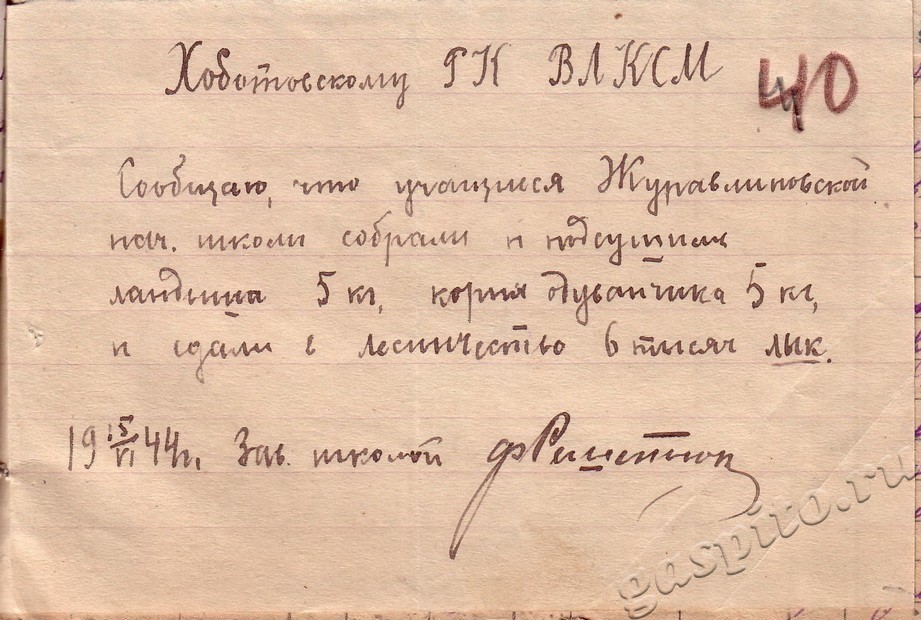 Хоботовскому РК ВЛКСМ
40
Сообщаю, что учащиеся Журавлиновской
нач. школы собрали и подсушили
ландыша 5 кг, корня одуванчика 5 кг,
и сдали в лесничество 6 тысяч лык.
19 15/VI 44 г. Зав. школой
gaspito.ru